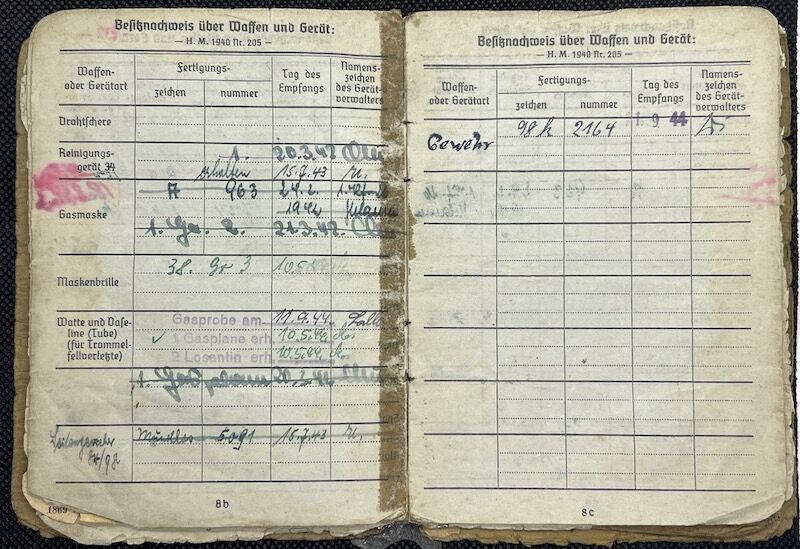 Besitznachweis über Waffen und Gerät:
— H. M. 1940 Nr. 205 —
Waffen- oder Gerätart
Fertigungs-
zeichen
nummer
Tag des Empfangs
Namens-zeichen des Gerät-verwalters
Drahtschere
Reinigungs-
gerät 34
1. 20.3.42
erhalten 15.7.43
7 963 24.2.
1942
Gasmaske
1. Ga. 21.3.42.
Maskenbrille
38. Gr 3 10.5.44
Watte und Vase-
line (Tube)
(für Trommel-
fellverletzte)
Gasprobe am 11.9.44.
✓ 1 Gasplane erh. 10.5.44
2 Losantin erh. 10.5.44
1.
Seitengewehr
84/98
5091 15.7.43
8b
1869
Besitznachweis über Waffen und Gerät:
— H. M. 1940 Nr. 205 —
Waffen- oder Gerätart
Fertigungs-
zeichen
nummer
Tag des Empfangs
Namens-zeichen des Gerät-verwalters
Gewehr 98k 2164 1 9 44
8c